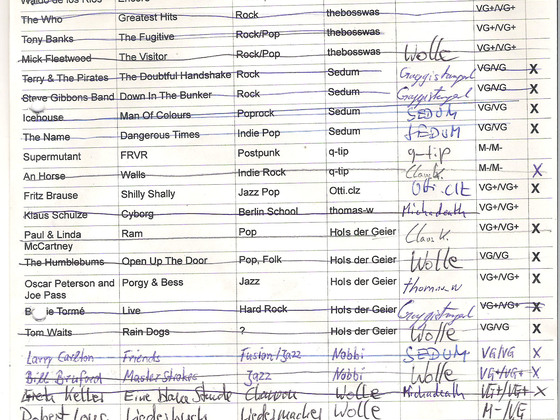 The Who Greatest Hits Rock thebosswas VG+/VG+
Tony Banks The Fugitive Rock/Pop thebosswas VG+/VG+
Mick Fleetwood The Visitor Rock/Pop thebosswas Wolle VG+/VG+
Terry & The Pirates The Doubtful Handshake Rock Sedum VG/VG X
Steve Gibbons Band Down In The Bunker Rock Sedum VG+/VG+ X
Icehouse Man Of Colours Poprock Sedum SEDUM VG/VG X
The Name Dangerous Times Indie Pop Sedum SEDUM VG/VG X
Supermutant FRVR Postpunk q-tip q-tip M-/M-
An Horse Walls Indie Rock q-tip Clam K. M-/M- X
Fritz Brause Shilly Shally Jazz Pop Otti.clz Otti.clz VG+/VG+ X
Klaus Schulze Cyborg Berlin School thomas-w Michadeath VG+/VG+ X
Paul & Linda Ram Pop Hols der Geier Clam K. VG+/VG+ X
McCartney
The Humblebums Open Up The Door Pop, Folk Hols der Geier Wolle VG/VG X
Oscar Peterson and Porgy & Bess Jazz Hols der Geier thomas-w VG+/VG+ X
Joe Pass
B ie Tormé Live Hard Rock Hols der Geier VG+/VG+ X
Tom Waits Rain Dogs ? Hols der Geier Wolle VG/VG X
Larry Carlton Friends Fusion/Jazz Nobbi SEDUM VG/VG X
Bill Bruford Master Strokes Jazz Nobbi Wolle VG+/VG+ X
Eine Stunde Wolle Michadeath VG+/VG+ X
Liederbuch Liedermacher Wolle M-/VG